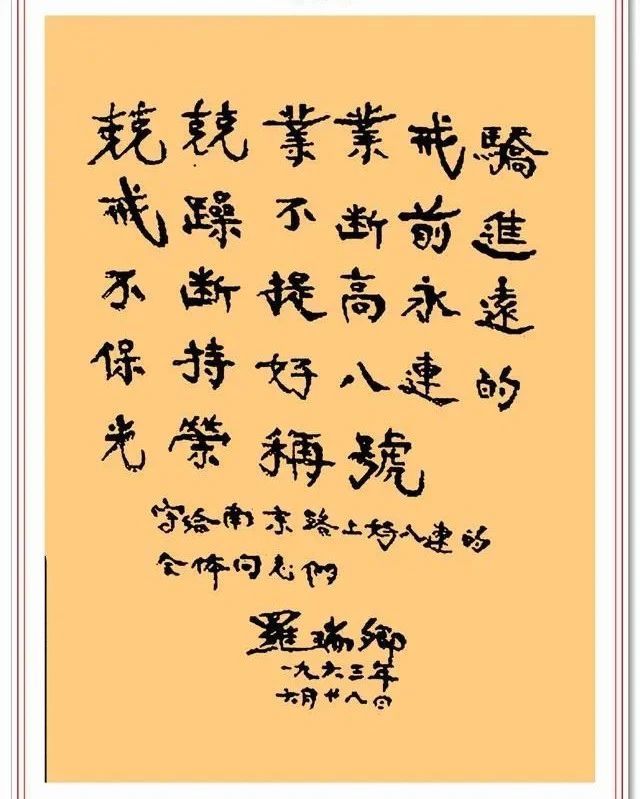 兢兢業業戒驕
戒躁不斷前進
不斷提高永遠
保持好八連的
光榮稱號
写给南京路上好八連的
全体同志們
羅瑞卿
一九六三年
六月廿八日